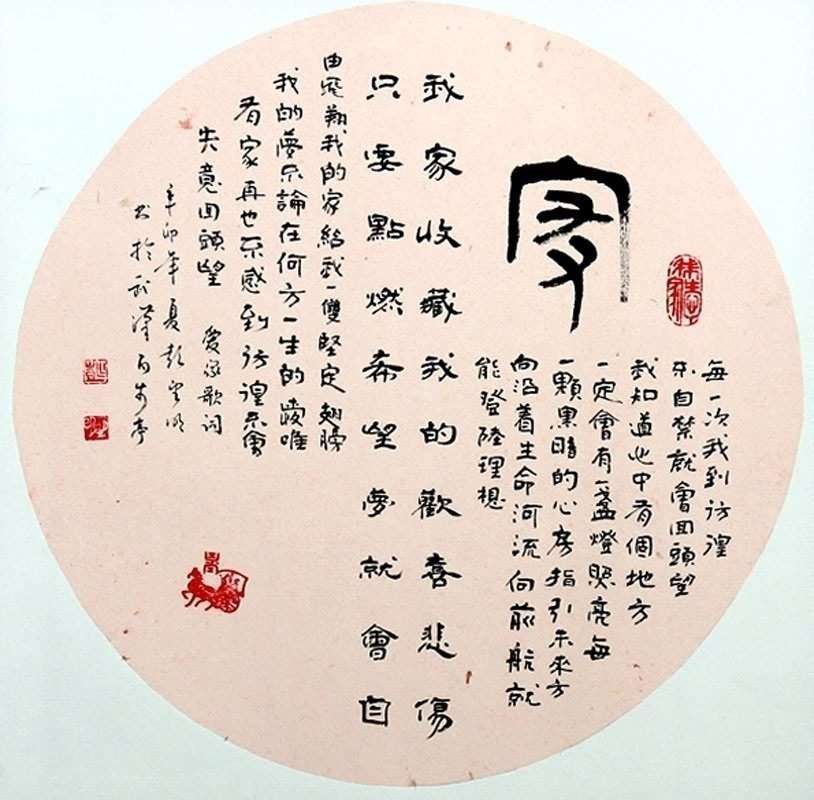 家
每一次我到彷徨
不自禁就會回頭望
我知道心中有個地方
一定會有一盞燈照亮每
一顆黑暗的心房指引未來方
向沿着生命河流向前航就
能登陸理想
我家收藏我的歡喜悲傷
只要點燃希望夢就會自
由飛翔我的家給我一雙堅定翅膀
我的夢不論在何方一生的唯
有家再也不感到彷徨不會
失意回頭望 愛家歌詞
辛卯年夏彭
书於武漢百步亭